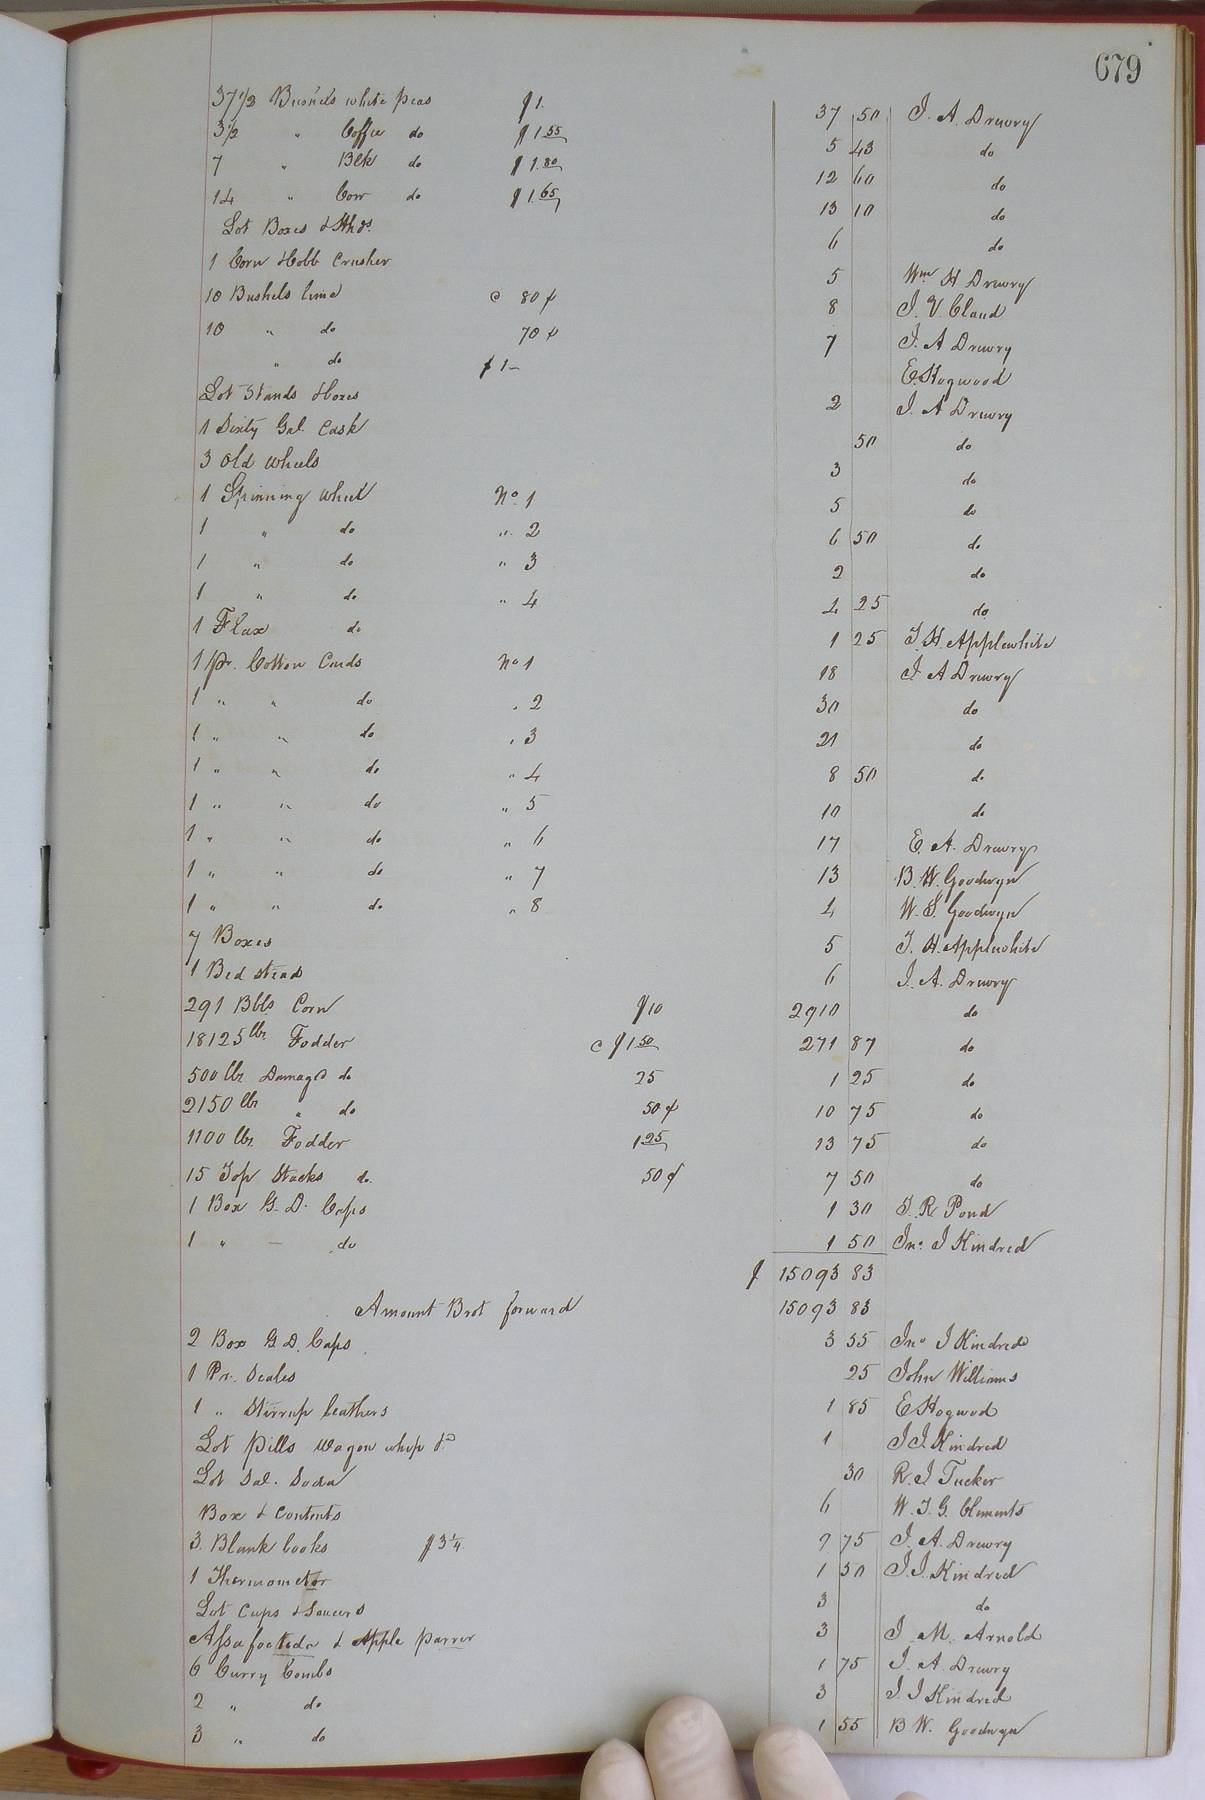 679
37 1/2 Bushels white peas $1. 37 50 J. A. Drewry
3 1/2 " Coffee do $1.55 5 43 do
7 " Blk do $1.80 12 60 do
14 " Cow do $1.65 13 10 do
Lot Boxes & Hhds. 6 do
1 Corn & Cobb Crusher 5 Wm H Drewry
10 Bushels lime @ 80 ¢ 8 J. V. Claud
10 " do 70 ¢ 7 J. A Drewry
" do $1– E. Hogwood
Lot Stands & boxes 2 J. A Drewry
1 Sixty Gal. Cask 50 do
3 Old Wheels 3 do
1 Spinning Wheel No 1 5 do
1 " do " 2 6 50 do
1 " do " 3 2 do
1 " do " 4 4 25 do
1 Flax do 1 25 T. H. Applewhite
1 Pr. Cotton Cards No 1 18 J. A Drewry
1 " " do " 2 30 do
1 " " do " 3 21 do
1 " " do " 4 8 50 do
1 " " do " 5 10 do
1 " " do " 6 17 E. A. Drewry
1 " " do " 7 13 B. W. Goodwyn
1 " " do " 8 4 W. S. Goodwyn
7 Boxes 5 T. H. Applewhite
1 Bed stead 6 J. A. Drewry
291 Bbls Corn $10 2910 do
18125 lbs Fodder @ $1.50 271 87 do
500 lbs Damagd do 25 1 25 do
2150 lbs " do 50 ¢ 10 75 do
1100 lbs. Fodder 1.25 13 75 do
15 Top Stacks do. 50 ¢ 7 50 do
1 Box G. D. Caps 1 30 T. R. Pond
1 " – do 1 50 Jno. J Kindred
$ 15093 83
Amount Brot forward 15093 83
2 Box G. D. Caps 3 55 Jno J Kindred
1 Pr. Scales 25 John Williams
1 " Stirrup leathers 1 85 E Hogwood
Lot Pills Wagon whip &c 1 J J. Kindred
Lot Sal. Soda 30 R. J Tucker
Box & Contents 6 W. T. G. Clements
3. Blank books $3 1/4 9 75 J. A. Drewry
1 Thermometor 1 50 J. J. Kindred
Lot Cups & Saucers 3 do
Assafoeteda & Apple Parrer 3 J. M. Arnold
6 Curry Combs 1 75 J. A. Drewry
2 " do 3 J. J Kindred
3 " do 1 55 B W. Goodwyn